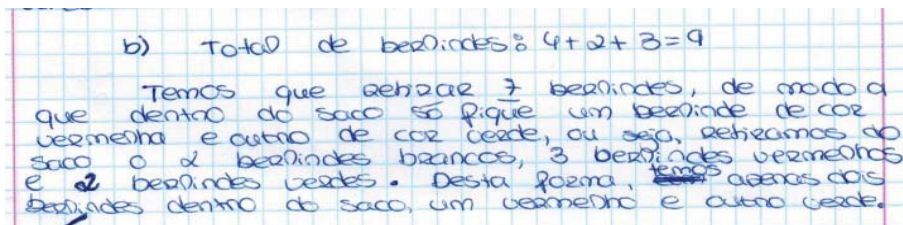 b) Total de berlindes: 4+2+3=9
Temos que retirar 7 berlindes, de modo a
que dentro do saco só fique um berlinde de cor
vermelha e outro de cor verde, ou seja, retiramos do
saco o 2 berlindes brancos, 3 berlindes vermelhos
e 2 berlindes verdes. Desta forma, temos apenas dois
berlindes dentro do saco, um vermelho e outro verde.